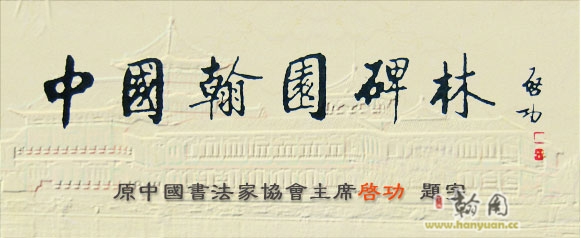 中國翰園碑林
啓功
原中國書法家協會主席啓功 題字
翰園
www.hanyuan.cc